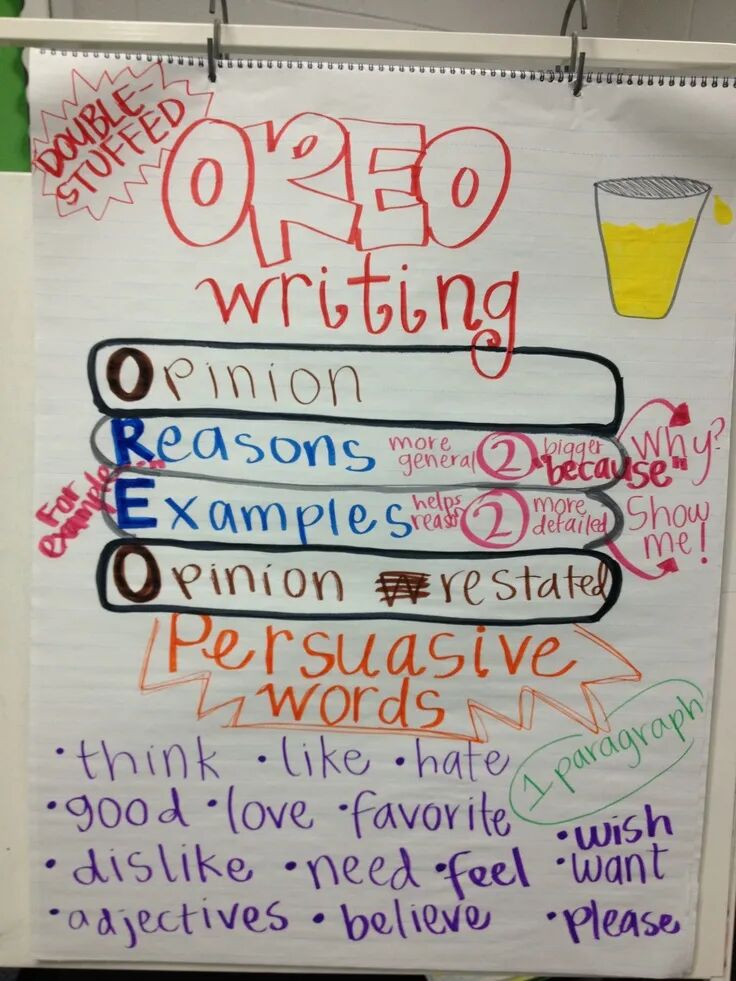 DOUBLE-
STUFFED
OREO
writing
Opinion
Reasons more general 2 bigger "because" Why?
For example...
Examples helps reason 2 more detailed Show me!
Opinion restated
Persuasive
words
1 paragraph
•think •like •hate
•good •love •favorite
•wish
•dislike •need •feel •want
•adjectives •believe •please